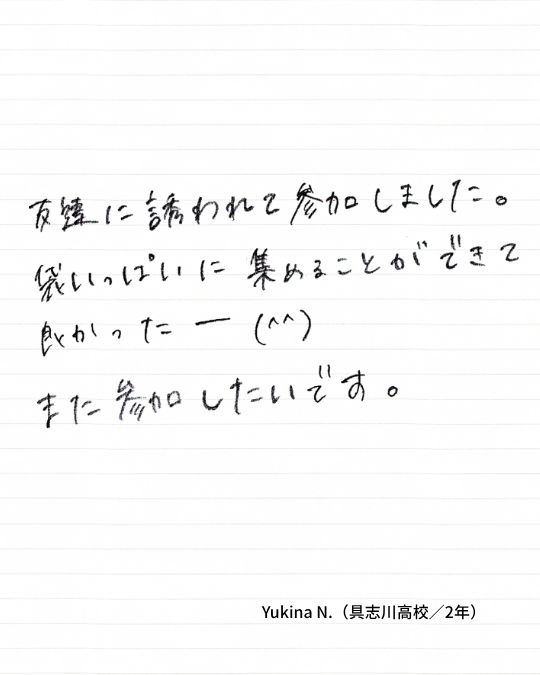 友達に誘われて参加しました。
袋いっぱいに集めることができて
良かったー(^^)
また参加したいです。
Yukina N.（具志川高校／2年）